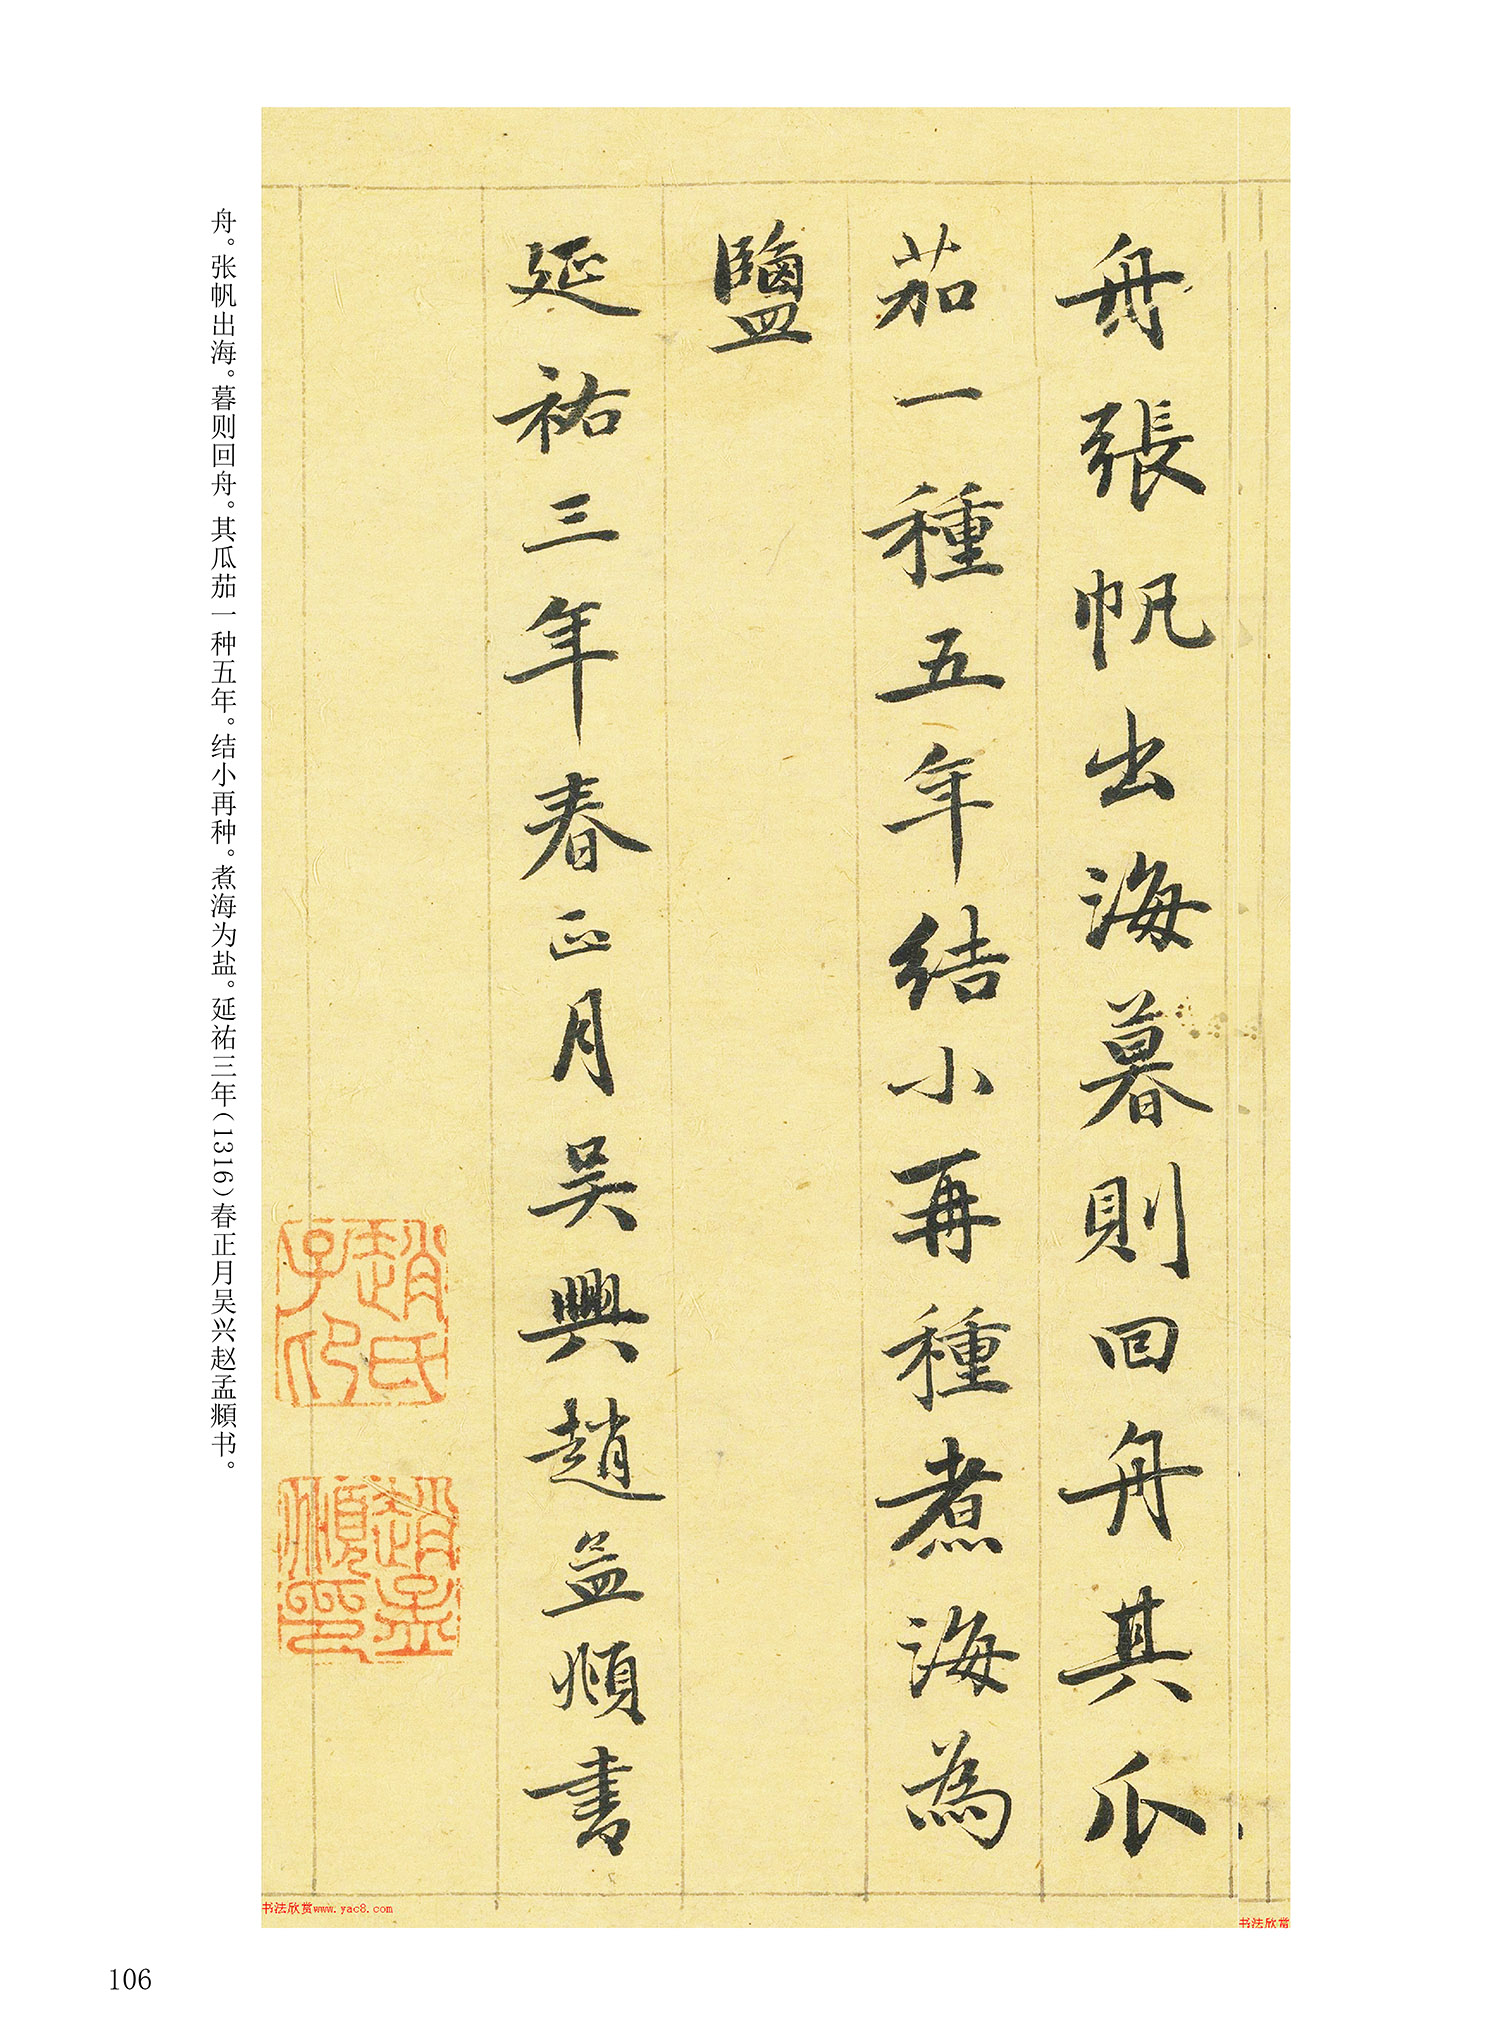 舟張帆出海暮則回舟其瓜
茄一種五年結小再種煮海為
鹽
延祐三年春正月吴興趙孟頫書
趙氏子印
趙孟頫印
舟。张帆出海。暮则回舟。其瓜茄一种五年。结小再种。煮海为盐。延祐三年(1316)春正月吴兴赵孟頫书。
书法欣赏www.yac8.com
书法欣赏
106